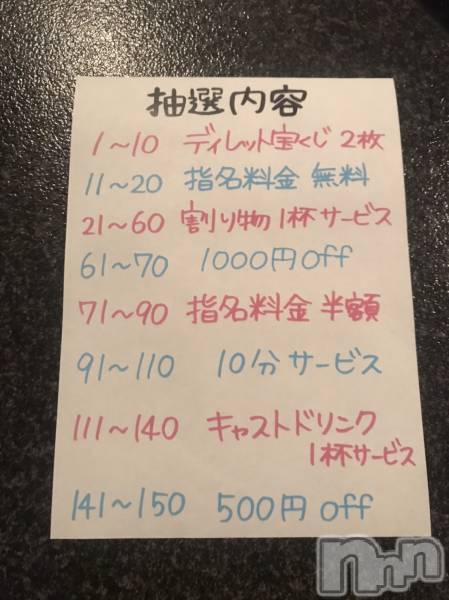 抽選内容
1～10 ディレット宝くじ 2枚
11～20 指名料金 無料
21～60 割り物 1杯サービス
61～70 1000円off
71～90 指名料金 半額
91～110 10分 サービス
111～140 キャストドリンク
1杯サービス
141～150 500円 off